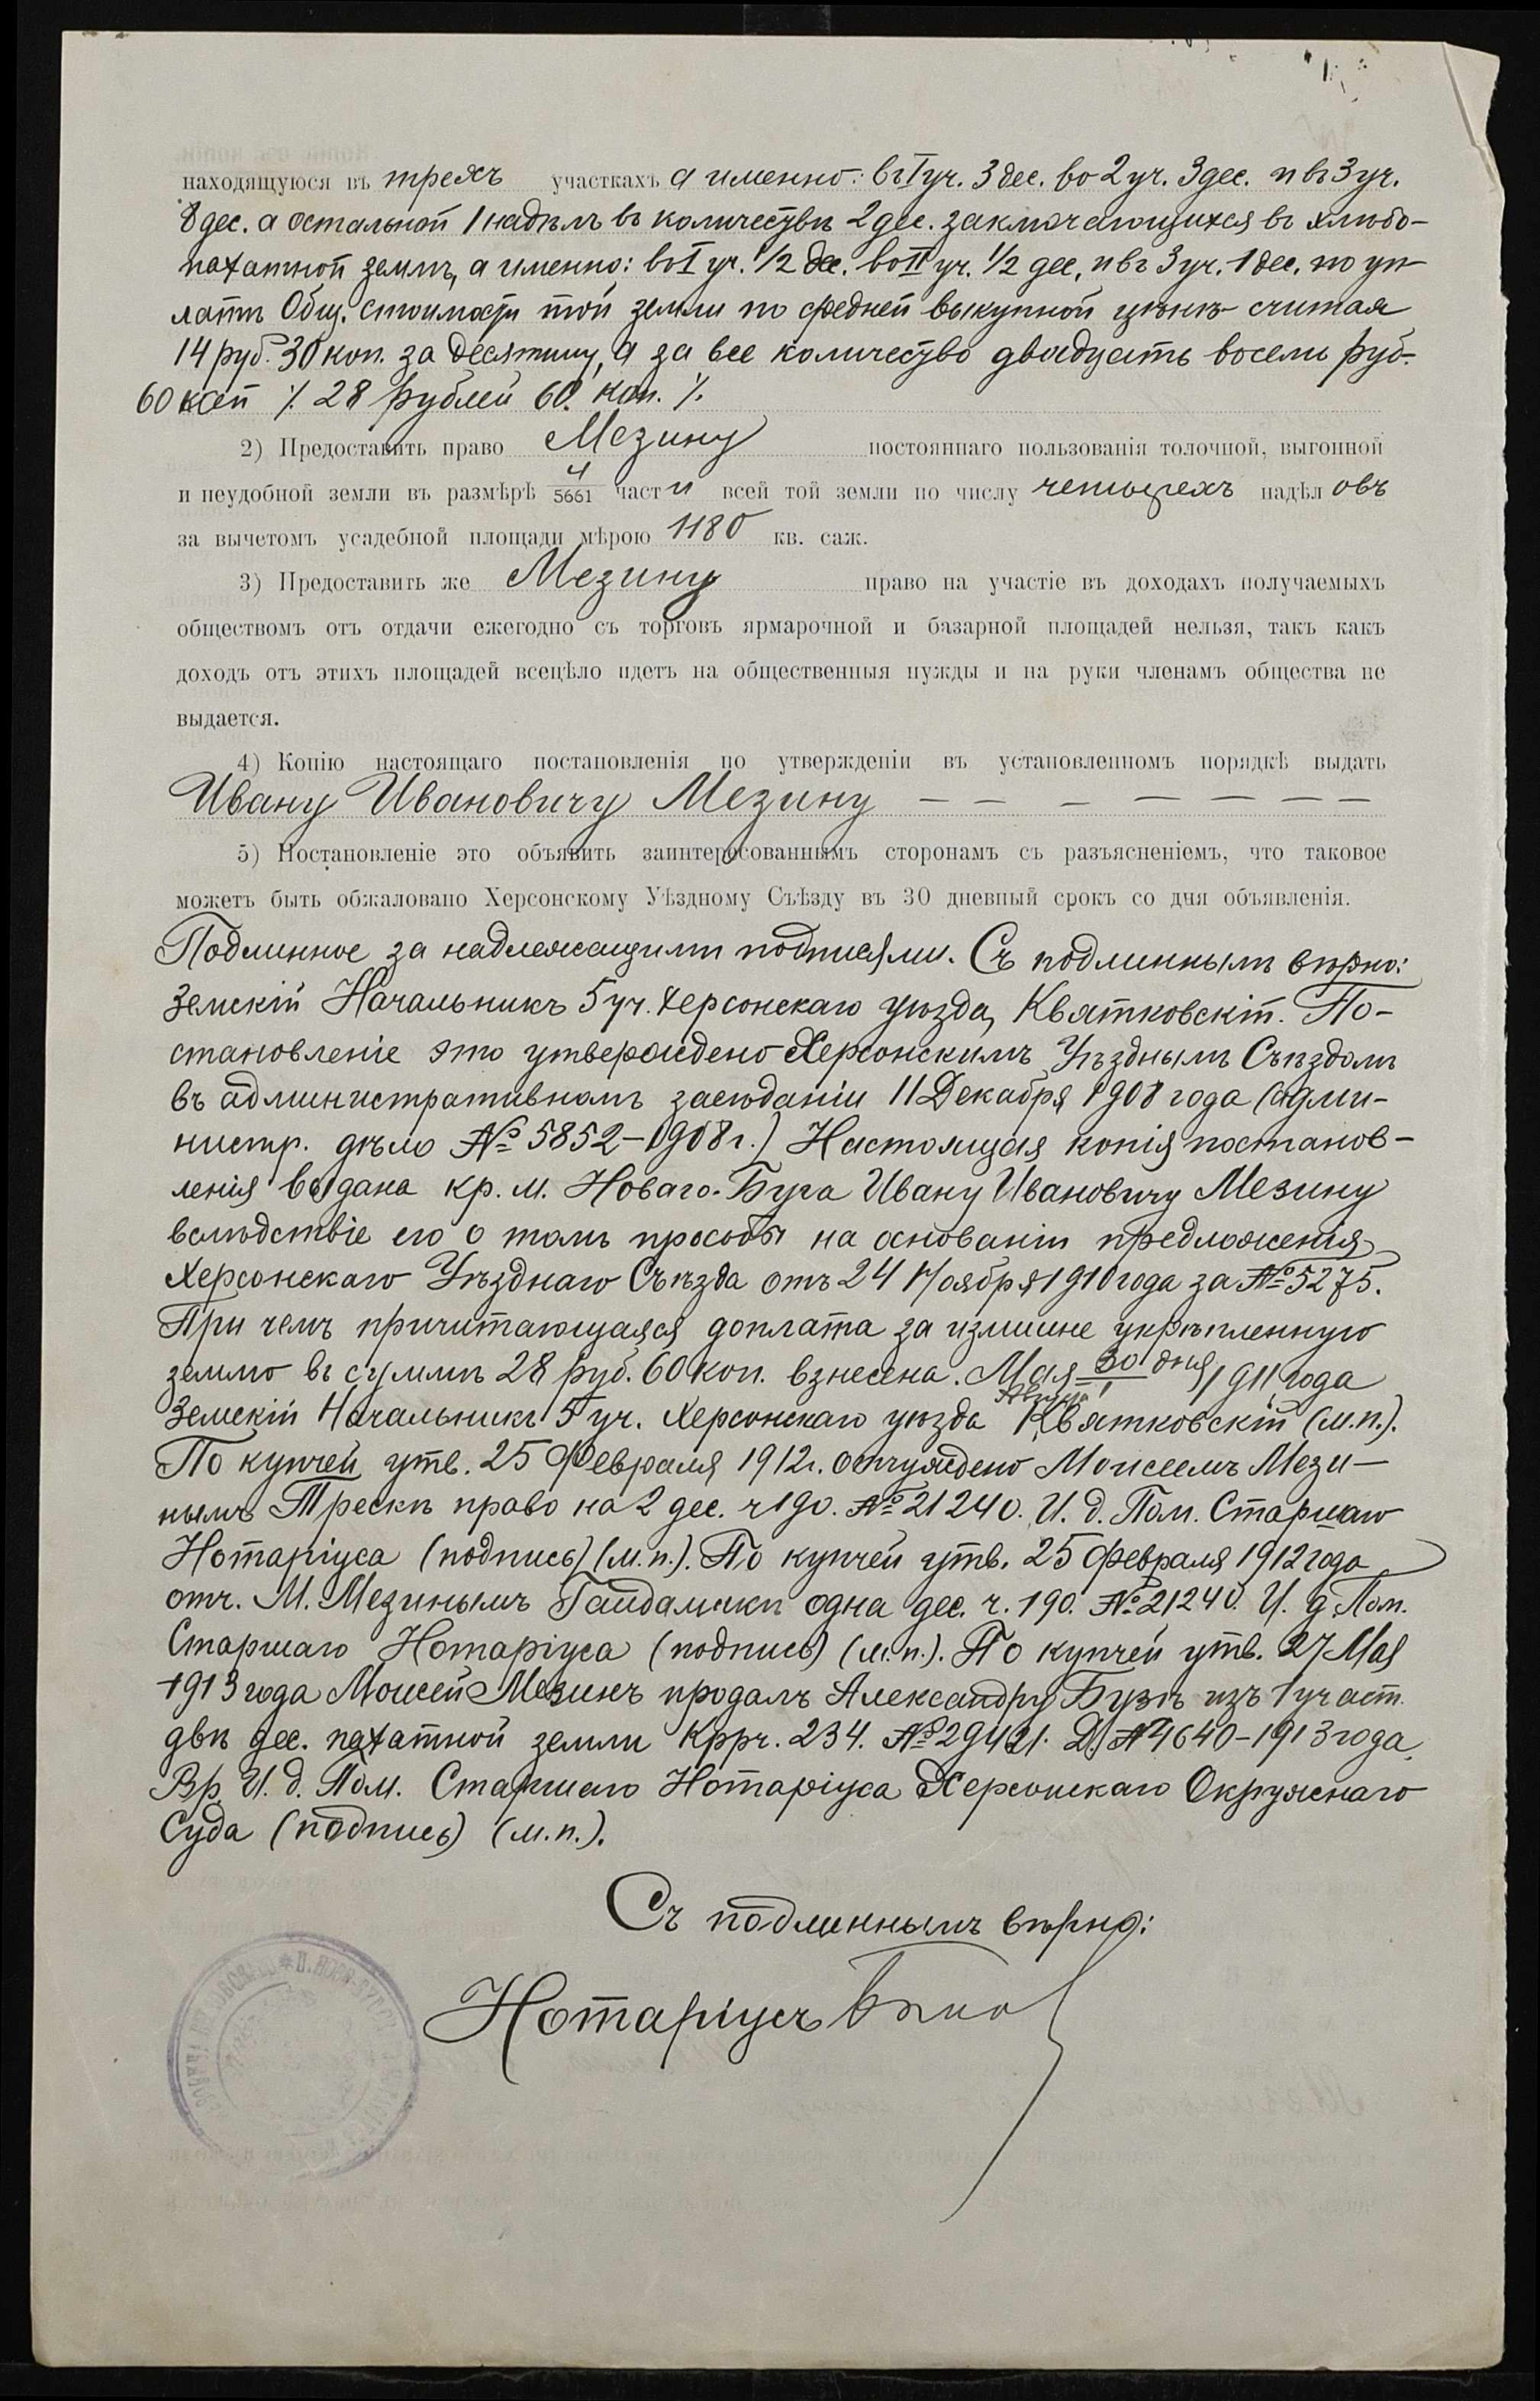 находящуюся въ трехъ участкахъ а именно: въ I уч. 3 дес. во 2 уч. 3 дес. и въ 3 уч.
8 дес. а остальной 1 надѣлъ въ количествѣ 2 дес. заключающихся въ хлѣбо-
пахатной землѣ, а именно: во I уч. 1/2 дес. во II уч. 1/2 дес, и въ 3 уч. 1 дес. по уп
латѣ Общ. стоимости той земли по средней выкупной цѣнѣ считая
14 руб. 30 коп. за десятину, а за все количество двадцать восемь руб.
60 коп ٪ 28 рублей 60 коп. ٪.
2) Предоставить право Мезину постояннаго пользованія толочной, выгонной
и неудобной земли въ размѣрѣ 4/5661 части всей той земли по числу четырехъ надѣловъ
за вычетомъ усадебной площади мѣрою 1180 кв. саж.
3) Предоставить же Мезину право на участіе въ доходахъ получаемыхъ
обществомъ отъ отдачи ежегодно съ торговъ ярмарочной и базарной площадей нельзя, такъ какъ
доходъ отъ этихъ площадей всецѣло идетъ на общественныя нужды и на руки членамъ общества не
выдается.
4) Копію настоящаго постановленія по утвержденіи въ установленномъ порядкѣ выдать
Ивану Ивановичу Мезину — — — — — — — —
5) Постановленіе это объявить заинтересованнымъ сторонамъ съ разъясненіемъ, что таковое
можетъ быть обжаловано Херсонскому Уѣздному Съѣзду въ 30 дневный срокъ со дня объявленія.
Подлинное за надлежащими подписями. Съ подлиннымъ вѣрно:
Земскій Начальникъ 5 уч. Херсонскаго уѣзда, Квятковскій. По-
становленіе это утверждено Херсонскимъ Уѣзднымъ Съѣздомъ
въ административномъ засѣданіи 11 Декабря 1908 года (адми-
нистр. дѣло № 5852–1908 г.) Настоящая копія постанов-
ленія выдана кр. м. Новаго-Буга Ивану Ивановичу Мезину
вслѣдствіе его о томъ просьбы на основаніи предложенія
Херсонскаго Уѣзднаго Съѣзда отъ 24 Ноября 1910 года за № 5275.
При чемъ причитающаяся доплата за излишне укрѣпленную
землю въ суммѣ 28 руб. 60 коп. взнесена. Мая 30 дня 1911 года
Земскій Начальникъ 5 уч. Херсонскаго уѣзда Квятковскій (м.п.).
По купчей утв. 25 Февраля 1912 г. отчуждено Моисеемъ Мези-
нымъ Трескѣ право на 2 дес. ч 190. № 21240. И. д. Пом. Старшаго
Нотаріуса (подпись) (м.п.). По купчей утв. 25 Февраля 1912 года
отч. М. Мезинымъ Гайдамакѣ одна дес. ч. 190. № 21240. И. д. Пом.
Старшаго Нотаріуса (подпись) (м.п.). По купчей утв. 27 Мая
1913 года Моисей Мезинъ продалъ Александру Бузѣ изъ 1 участ.
двѣ дес. пахатной земли Крѣп. 234. № 29421. Д. № 4640–1913 года.
Вр. И. д. Пом. Старшаго Нотаріуса Херсонскаго Окружнаго
Суда (подпись) (м.п.).
Съ подлиннымъ вѣрно:
Нотаріусъ